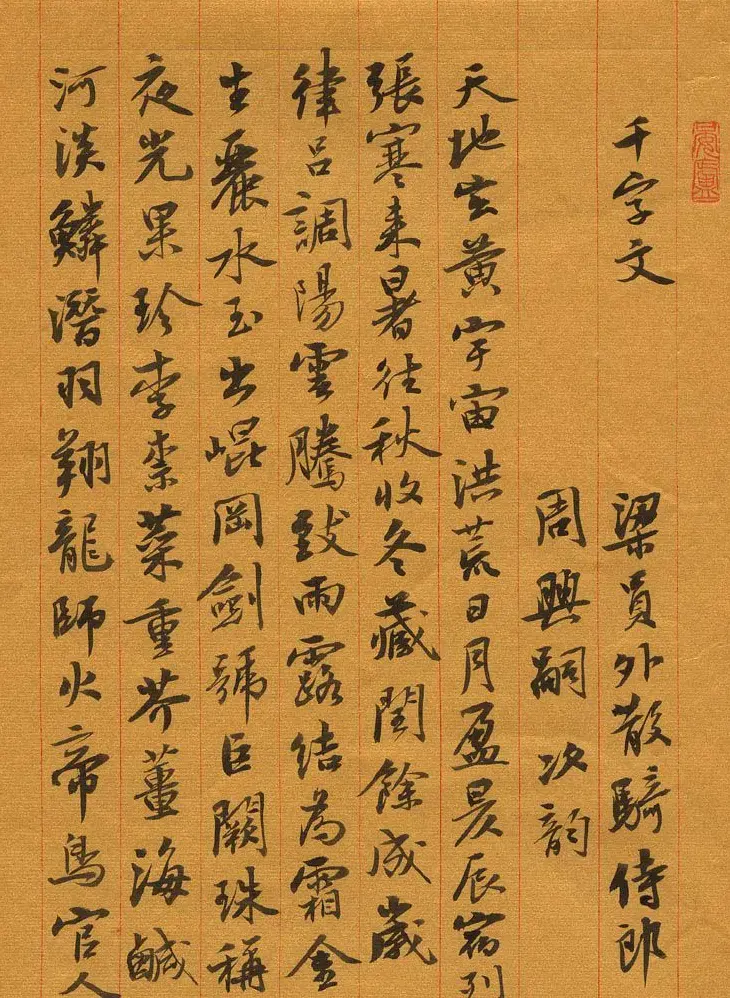 千字文 梁員外散騎侍郎
周興嗣次韵
天地玄黃宇宙洪荒日月盈昃辰宿列
張寒来暑往秋收冬藏閏餘成歲
律呂調陽雲騰致雨露結為霜金
生麗水玉出崐岡劍號巨闕珠稱
夜光果珍李柰菜重芥薑海鹹
河淡鱗潛羽翔龍師火帝鳥官人